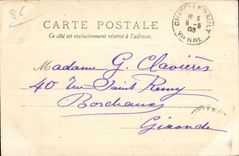 86
CARTE POSTALE
Ce côté est exclusivement réservé à l'adresse.
Madame G. Clavières
40 rue Saint Remy
Bordeaux
Gironde
VIENNE